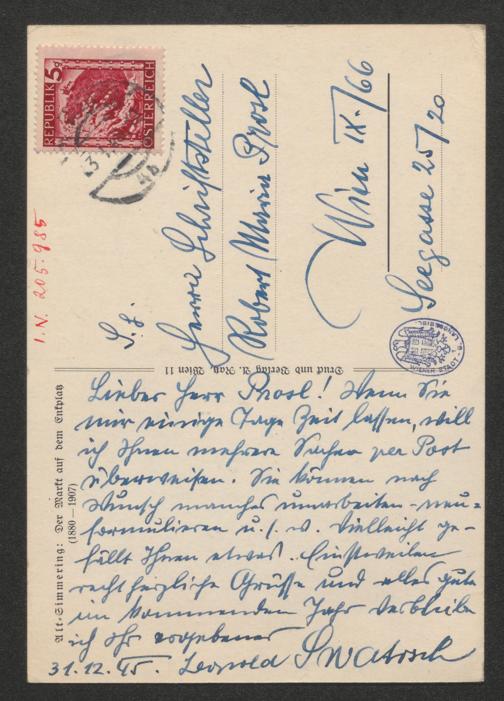 REPUBLIK 5g ÖSTERREICH
48
I.N. 205.985
S. g.
Herrn Schriftsteller
Robert Maria Prosl
Wien IX./66
Seegasse 25/20
WIENER STADT-
Druck und Verlag A. Katz, Wien 11
Alt-Simmering: Der Markt auf dem Enkplatz
(1880—1907)
Lieber Herr Prosl! Wenn Sie
mir einige Tage Zeit lassen, will
ich Ihnen mehrere Sachen per Post
überweisen. Sie können nach
Wunsch manches umarbeiten - neu-
formulieren u.s.w. Vielleicht ge-
fällt Ihnen etwas. Einstweilen
recht herzliche Grüsse und alles gute
im kommenden Jahr verbleibe
ich Ihr ergebener
31.12.45. Leopold Swatosch